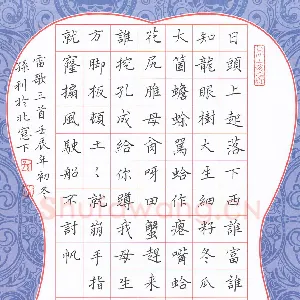 日頭上起落下西誰富誰
知龍眼樹大生細籽冬瓜
大箇蟾蜍罵蛤作嘴蛤
花尻脽母肏呀田蟹趕來
誰挖孔成給你蹲我母生
方脚板頓土就崩手指
就窿搧風駛船不討帆
畲歌三首壬辰年初冬
孫利於北窓下
Shufawang.CN